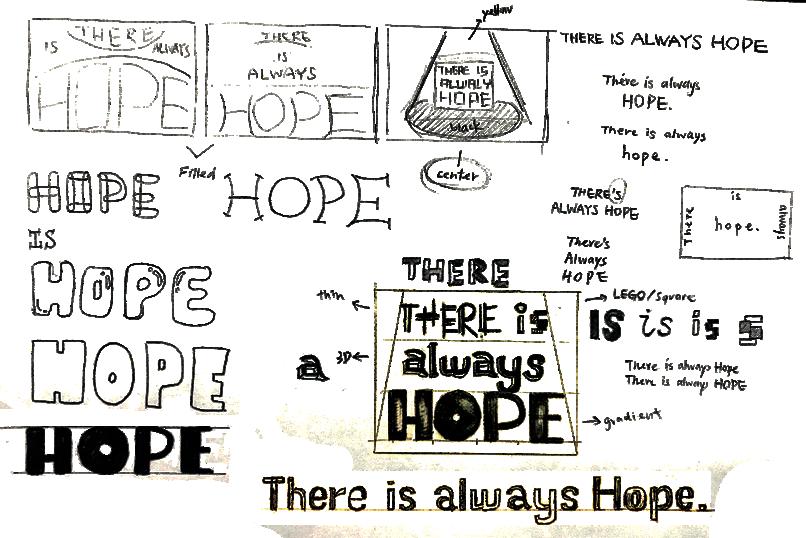 IS THERE ALWAYS
HOPE
THERE
IS
ALWAYS
HOPE
yellow
THERE IS
ALWALY
HOPE
black
center
Filled
THERE IS ALWAYS HOPE
There is always
HOPE.
There is always
hope.
THERE'S
ALWAYS HOPE
There's
Always
HOPE
is
There hope. always
HOPE
HOPE
IS
HOPE
HOPE
HOPE
THERE
thin
THERE is
LEGO/square
IS is is S
a
3D
always
HOPE
gradient
There is always Hope
There is always HOPE
There is always Hope.